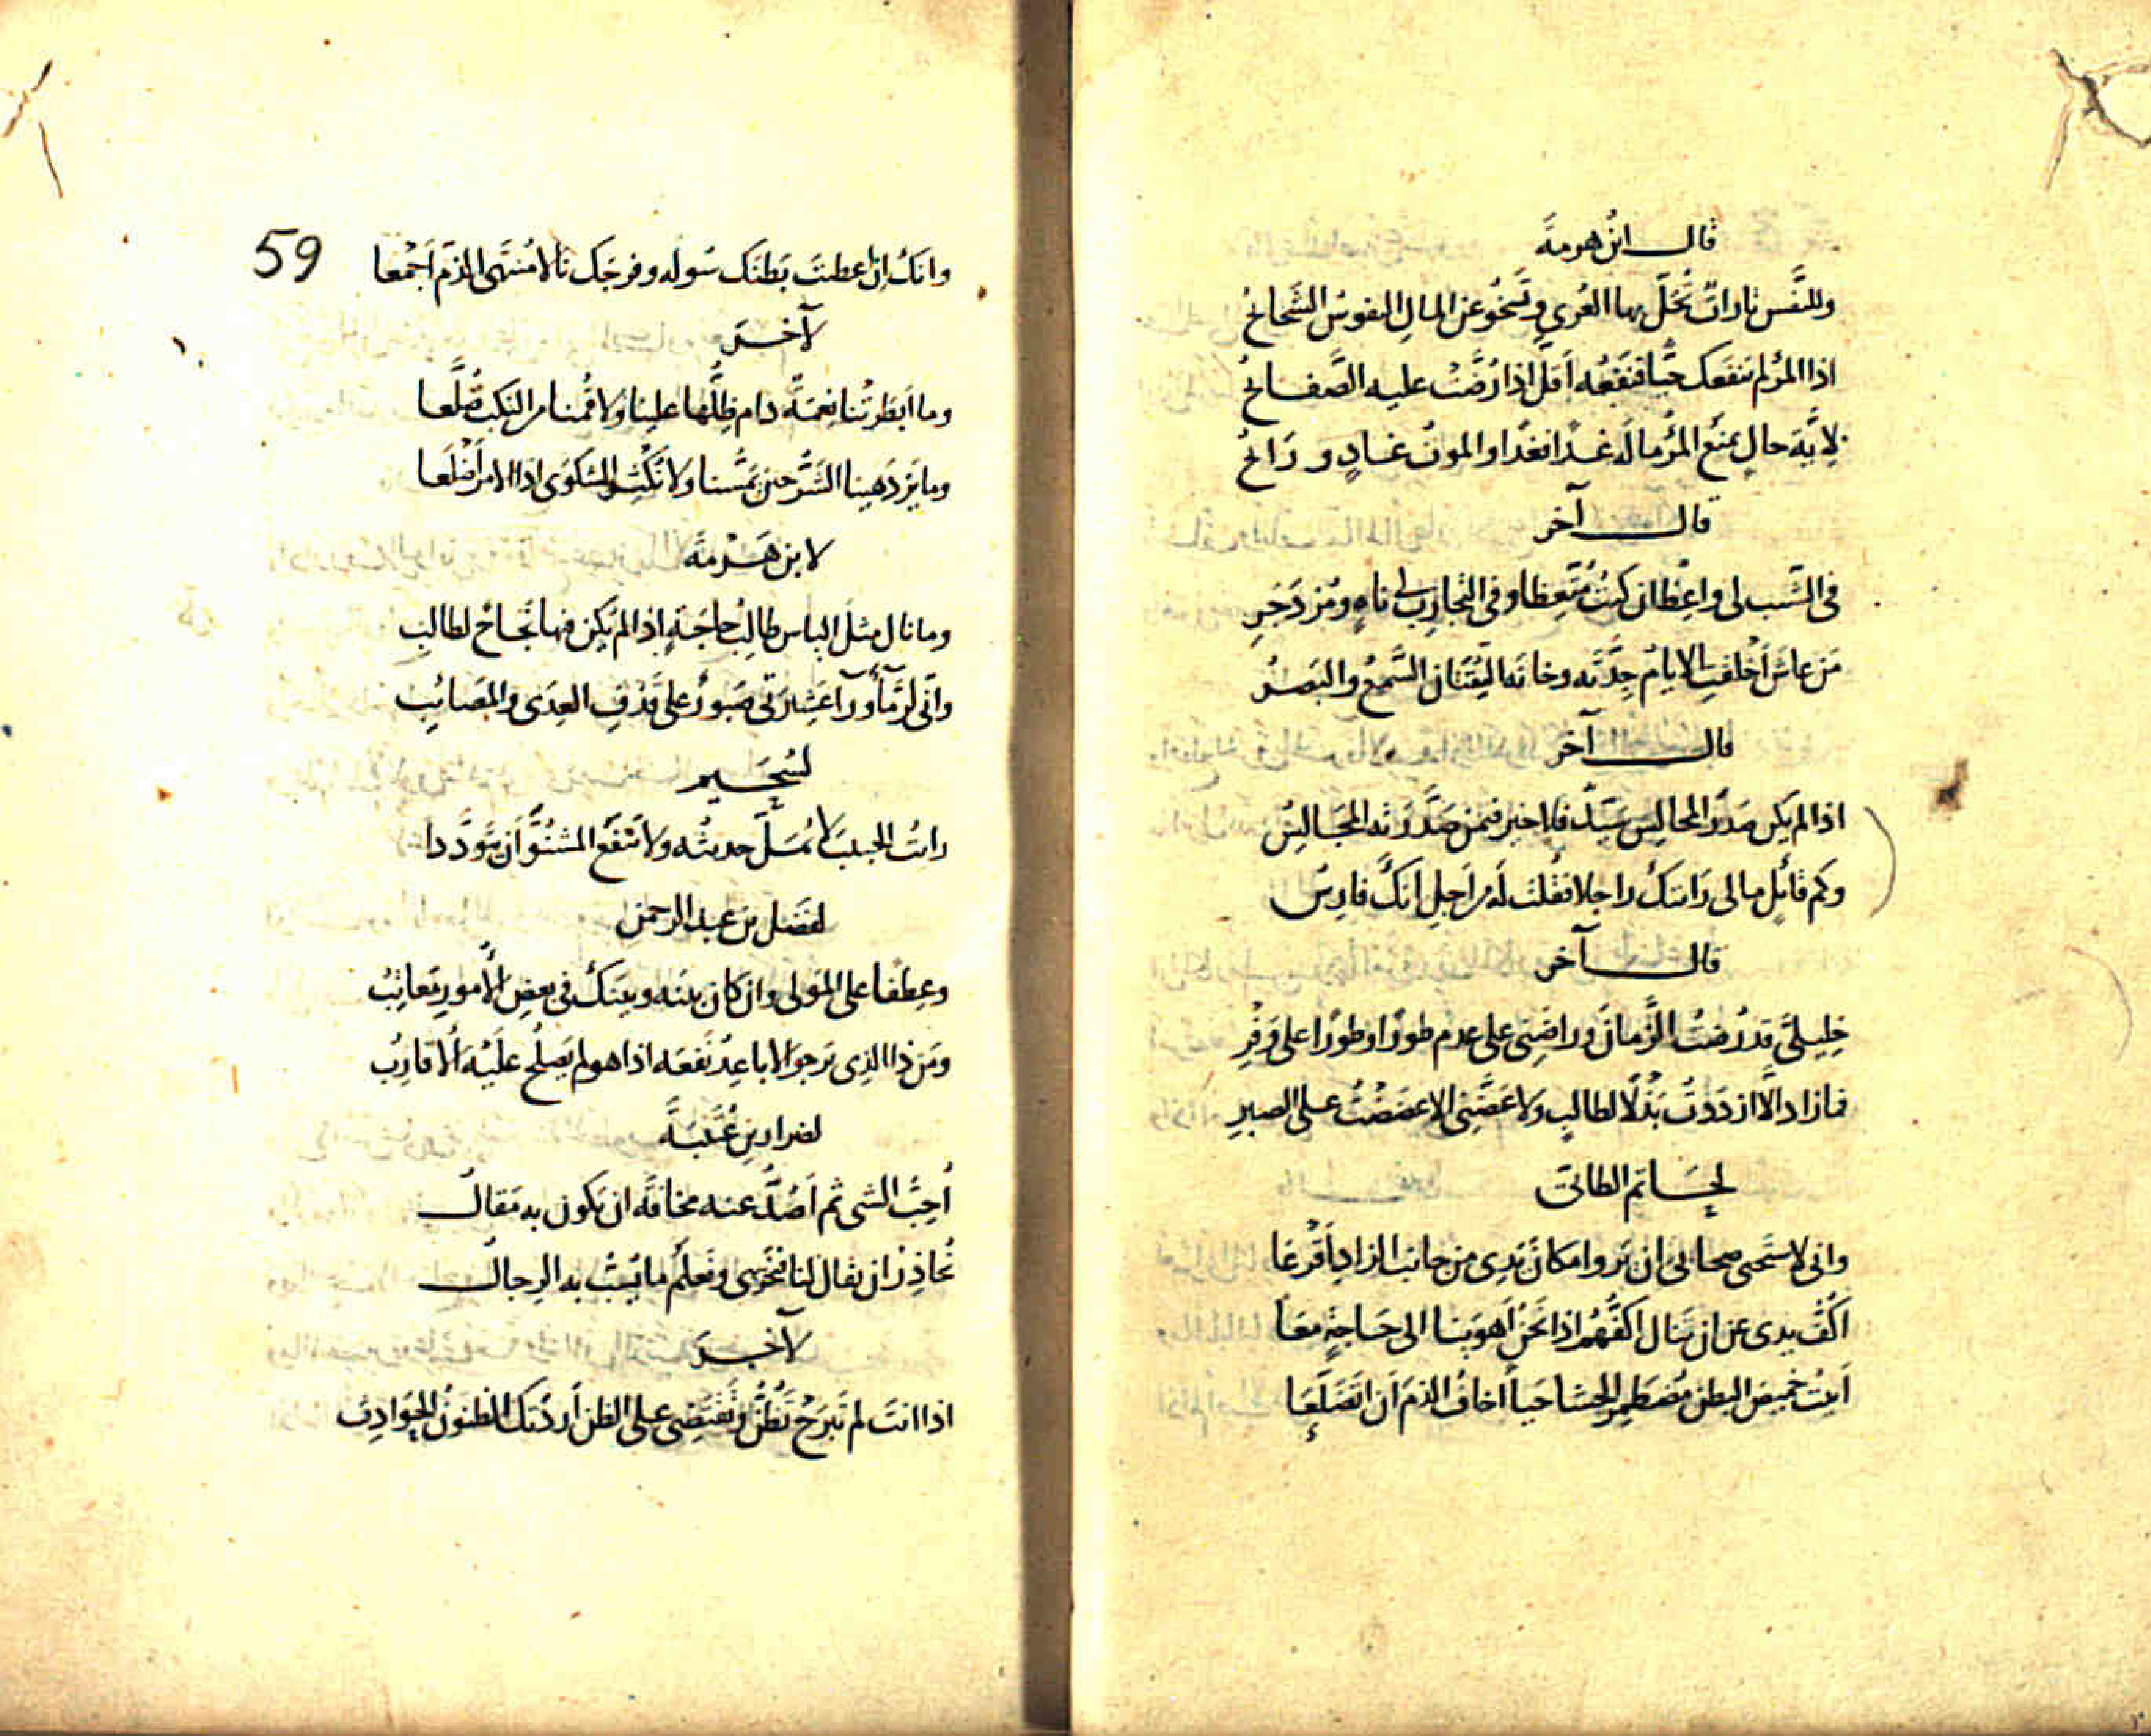 قال ابن هرمة
وللنَّفس تاراتٌ تُحَلّ بها العُرى وتَسْخُو عن المالِ النفوسُ الشَّحائحُ
اذا المرُ لم ينفعك حيًّا فنفعُه أقلّ اذا رُصَّتْ عليه الصَّفائحُ
لايَّة حالٍ يمنَع المرُ مالَه غدًا فغدًا والموتُ غادٍ ورائحُ
قال آخر
في الشَّيب لى واعظٌ ان كنتُ مُتَّعِظا وفى التجارِب لى ناهٍ ومُزدَجَرِ
مَن عاشَ أَخلَقتِ الايامُ جِدَّتَه وخانَه الثِّقتان السَّمعُ والبَصرُ
قال آخر
اذا لم يكن صَدْرَ المجالِس سَيّدٌ فلا خير فيمن صَدَّرَتْه المَجَالِسُ
وكم قائلٍ مالى رَايتك راجلا فقُلت لَه من اَجلِ انكَ فارِسُ
قال آخر
خليلىَّ قد رُضتُ الزَّمانَ وراضَنى على عدمٍ طورًا وطورًا على وَفْرِ
فما زاد الّا ازددتُ بَذْلًا لطالبٍ ولا عَضَّنى الا عضَضْتُ على الصبرِ
لِحَاتم الطائىّ
وانى لاستَحيى صحابى ان يَروا مكانَ يَدِى من جانب الزادِ أَقْرعَا
أكُفّ يدى عن ان تنال اكفَّهُم اذا نَحنُ أهوَينا الى حَاجةٍ مَعَا
أَبيتُ خميصَ البطن مُضطَمِر الحشا حَياً اخافُ الذمَ أن اتَضَلَّعَا
59
وانكَ ان اعطيتَ بَطنَك سُولَه وفرجَك نالا مُنتَهى الذمّ أَجمَعا
لآخرَ
وما أبطرتنا نِعمَةٌ دام ظِلُّها علينا ولا قُمنا من النكب ضُلَّعا
وما يزدَهينا الشَّرُّ حين يَمَسُّنا ولا نُكْثِر الشكوَى اذا الامر أَضلَعا
لابن هَرْمة
وما نال مثلَ الياس طالِبُ حاجَةٍ اذا لم يكن فيها نَجاحٌ لطالبِ
وانّى لرَمّآءٌ ورآ عَشِيرَتى صَبورٌ على قَذفِ العِدَى والمَصائبِ
لسُحَيم
رايتُ الحبيبَ لا يُمَلّ حديثُه ولا يَنْفَع المَشنُوَّ أن يَتَودَّدا
لفضل بن عبد الرحمن
وعِطفا على المَولى وان كان بينه وبينَكَ فى بعضِ الأمورِ مَعاتِبُ
ومَن ذا الذى يَرجوا الاباعِدُ نَفعَه اذا هو لم يَصلُح علَيْه الاقارِبُ
لضرار بن عُتَيبَة
أُحِبّ الشى ثم أَصُدّ عنه مخافَة ان يَكون به مَقالُ
نُحاذِرُ ان يقال لنا فنَخزى ونَعلَم ما يُسَبُّ به الرجالُ
لآخرَ
اذا انتَ لم تَبرَحْ تَظُنُّ وتَقتَضى على الظن أردَتك الظنونُ الكواذِبُ